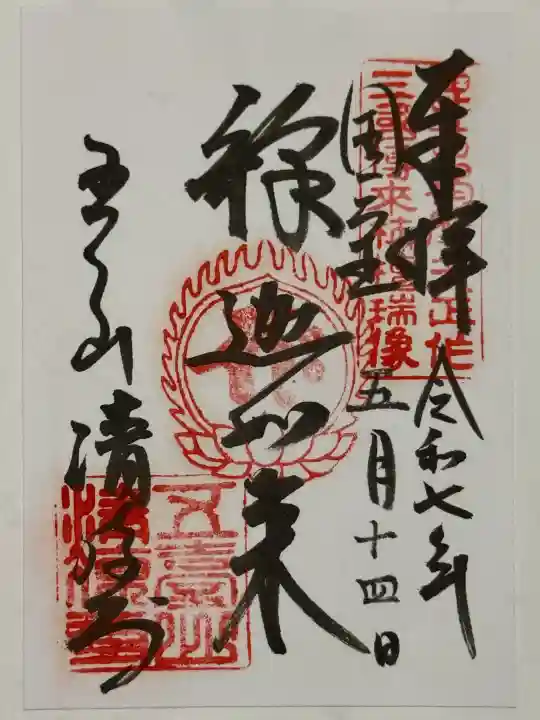 奉拝 令和七年
国宝 五月十四日
釋迦如来
五台山 清凉寺
三國傳來栴檀瑞像
五臺山
清凉寺